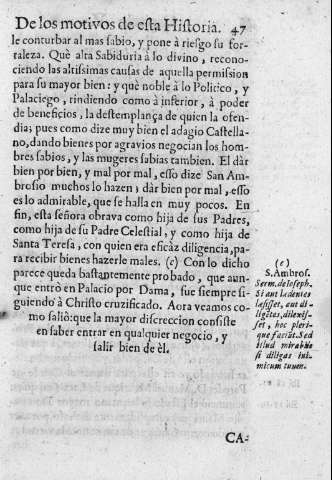 De los motivos de esta Historia. 47
le conturbar al mas sabio, y pone à riesgo su for-
taleza. Què alta Sabiduria à lo divino, recono-
ciendo las altissimas causas de aquella permission
para su mayor bien: y què noble à lo Politico, y
Palaciego, rindiendo como à inferior, à poder
de beneficios, la destemplança de quien la ofen-
dia; pues como dize muy bien el adagio Castella-
no, dando bienes por agravios negocian los hombres
sabios, y las mugeres sabias tambien. El dàr
bien por bien, y mal por mal, esso dize San Am-
brosio muchos lo hazen; dàr bien por mal, esso
es lo admirable, que se halla en muy pocos. En
fin, esta señora obrava como hija de sus Padres,
como hija de su Padre Celestial, y como hija de
Santa Teresa, con quien era eficàz diligencia, pa-
ra recibir bienes hazerle males. (e) Con lo dicho
parece queda bastantemente probado, que aun-
que entrò en Palacio por Dama, fue siempre si-
guiendo à Christo cruzificado. Aora veamos co-
mo saliò: que la mayor discreccion consiste
en saber entrar en qualquier negocio, y
salir bien de èl.
(e)
S. Ambros.
Serm. de Ioseph.
Si ant lædentes
læsisset, aut di-
ligētas, dilexis-
set, hoc pleri-
que faciūt. Sed
illud mirabile
si diligas ini-
micum tuum.
CA-